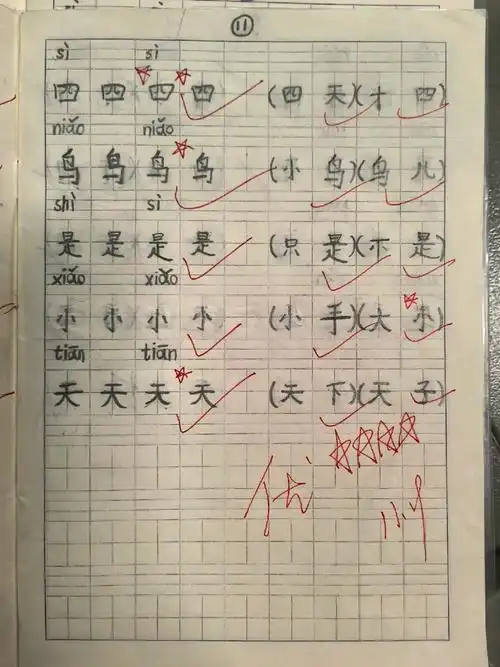 11
sì sì
四 四 四 四 (四 天)(才 四)
niǎo niǎo
鸟 鸟 鸟 鸟 (小 鸟)(鸟 儿)
shì sì
是 是 是 是 (只 是)(不 是)
xiǎo xiǎo
小 小 小 小 (小 手)(大 小)
tiān tiān
天 天 天 天 (天 下)(天 子)
优
11.9